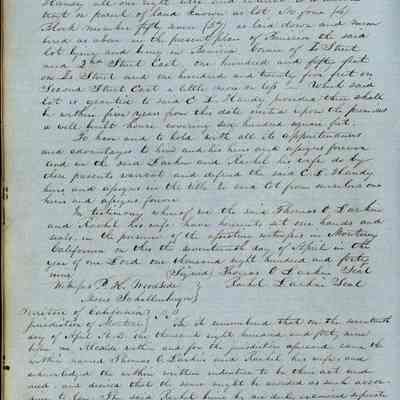 Handy all our right title and interest
tract or parcel of land known as lot No four (4)
Block number fifty seven (57) as laid down and num
bered as above in the present plan of Benicia the said
lot lying and being in Benicia Corner of L Street
and 2nd Street East one hundred and fifty feet
on L Street and one hundred and twenty five feet on
Second Street East a little more or less Which said
lot is granted to said C. L. Handy provided there shall
be within five years from this date erected upon the premises
a well built house covering six hundred square feet.
To have and to hold with all its appurtenances
and advantages to him and his heirs and assigns forever
and we the said Larkin and Rachel his wife do by
these presents warrant and defend the said C. L. Handy
heirs and assigns in the title to said lot from ourselves our
heirs and assigns forever
In testimony whereof we the said Thomas O. Larkin
and Rachel his wife have hereunto set our hands and
seals, in the presence of the opposite witnesses in Monterey
California on this the seventeenth day of April in the
year of our Lord one thousand eight hundred and forty
nine (Signed) Thomas O Larkin Seal
Witness P. H. Woodside Rachel Larkin Seal
Schallenberger
Territory of California
jurisdiction of Monterey Be it remembered that on the seventeenth
day of April A.D. One thousand eight hundred and forty nine
before an Alcalde within and for the jurisdiction aforesaid came the
within named Thomas O Larkin and Rachel his wife and
acknowledged the within written indenture to be their act and
deed and desired that the same might be recorded as such accor
ding to law The said Rachel being by me duly examined separate